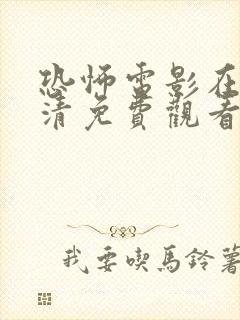 恐怖電影在
清免費觀看
我要喫馬鈴薯